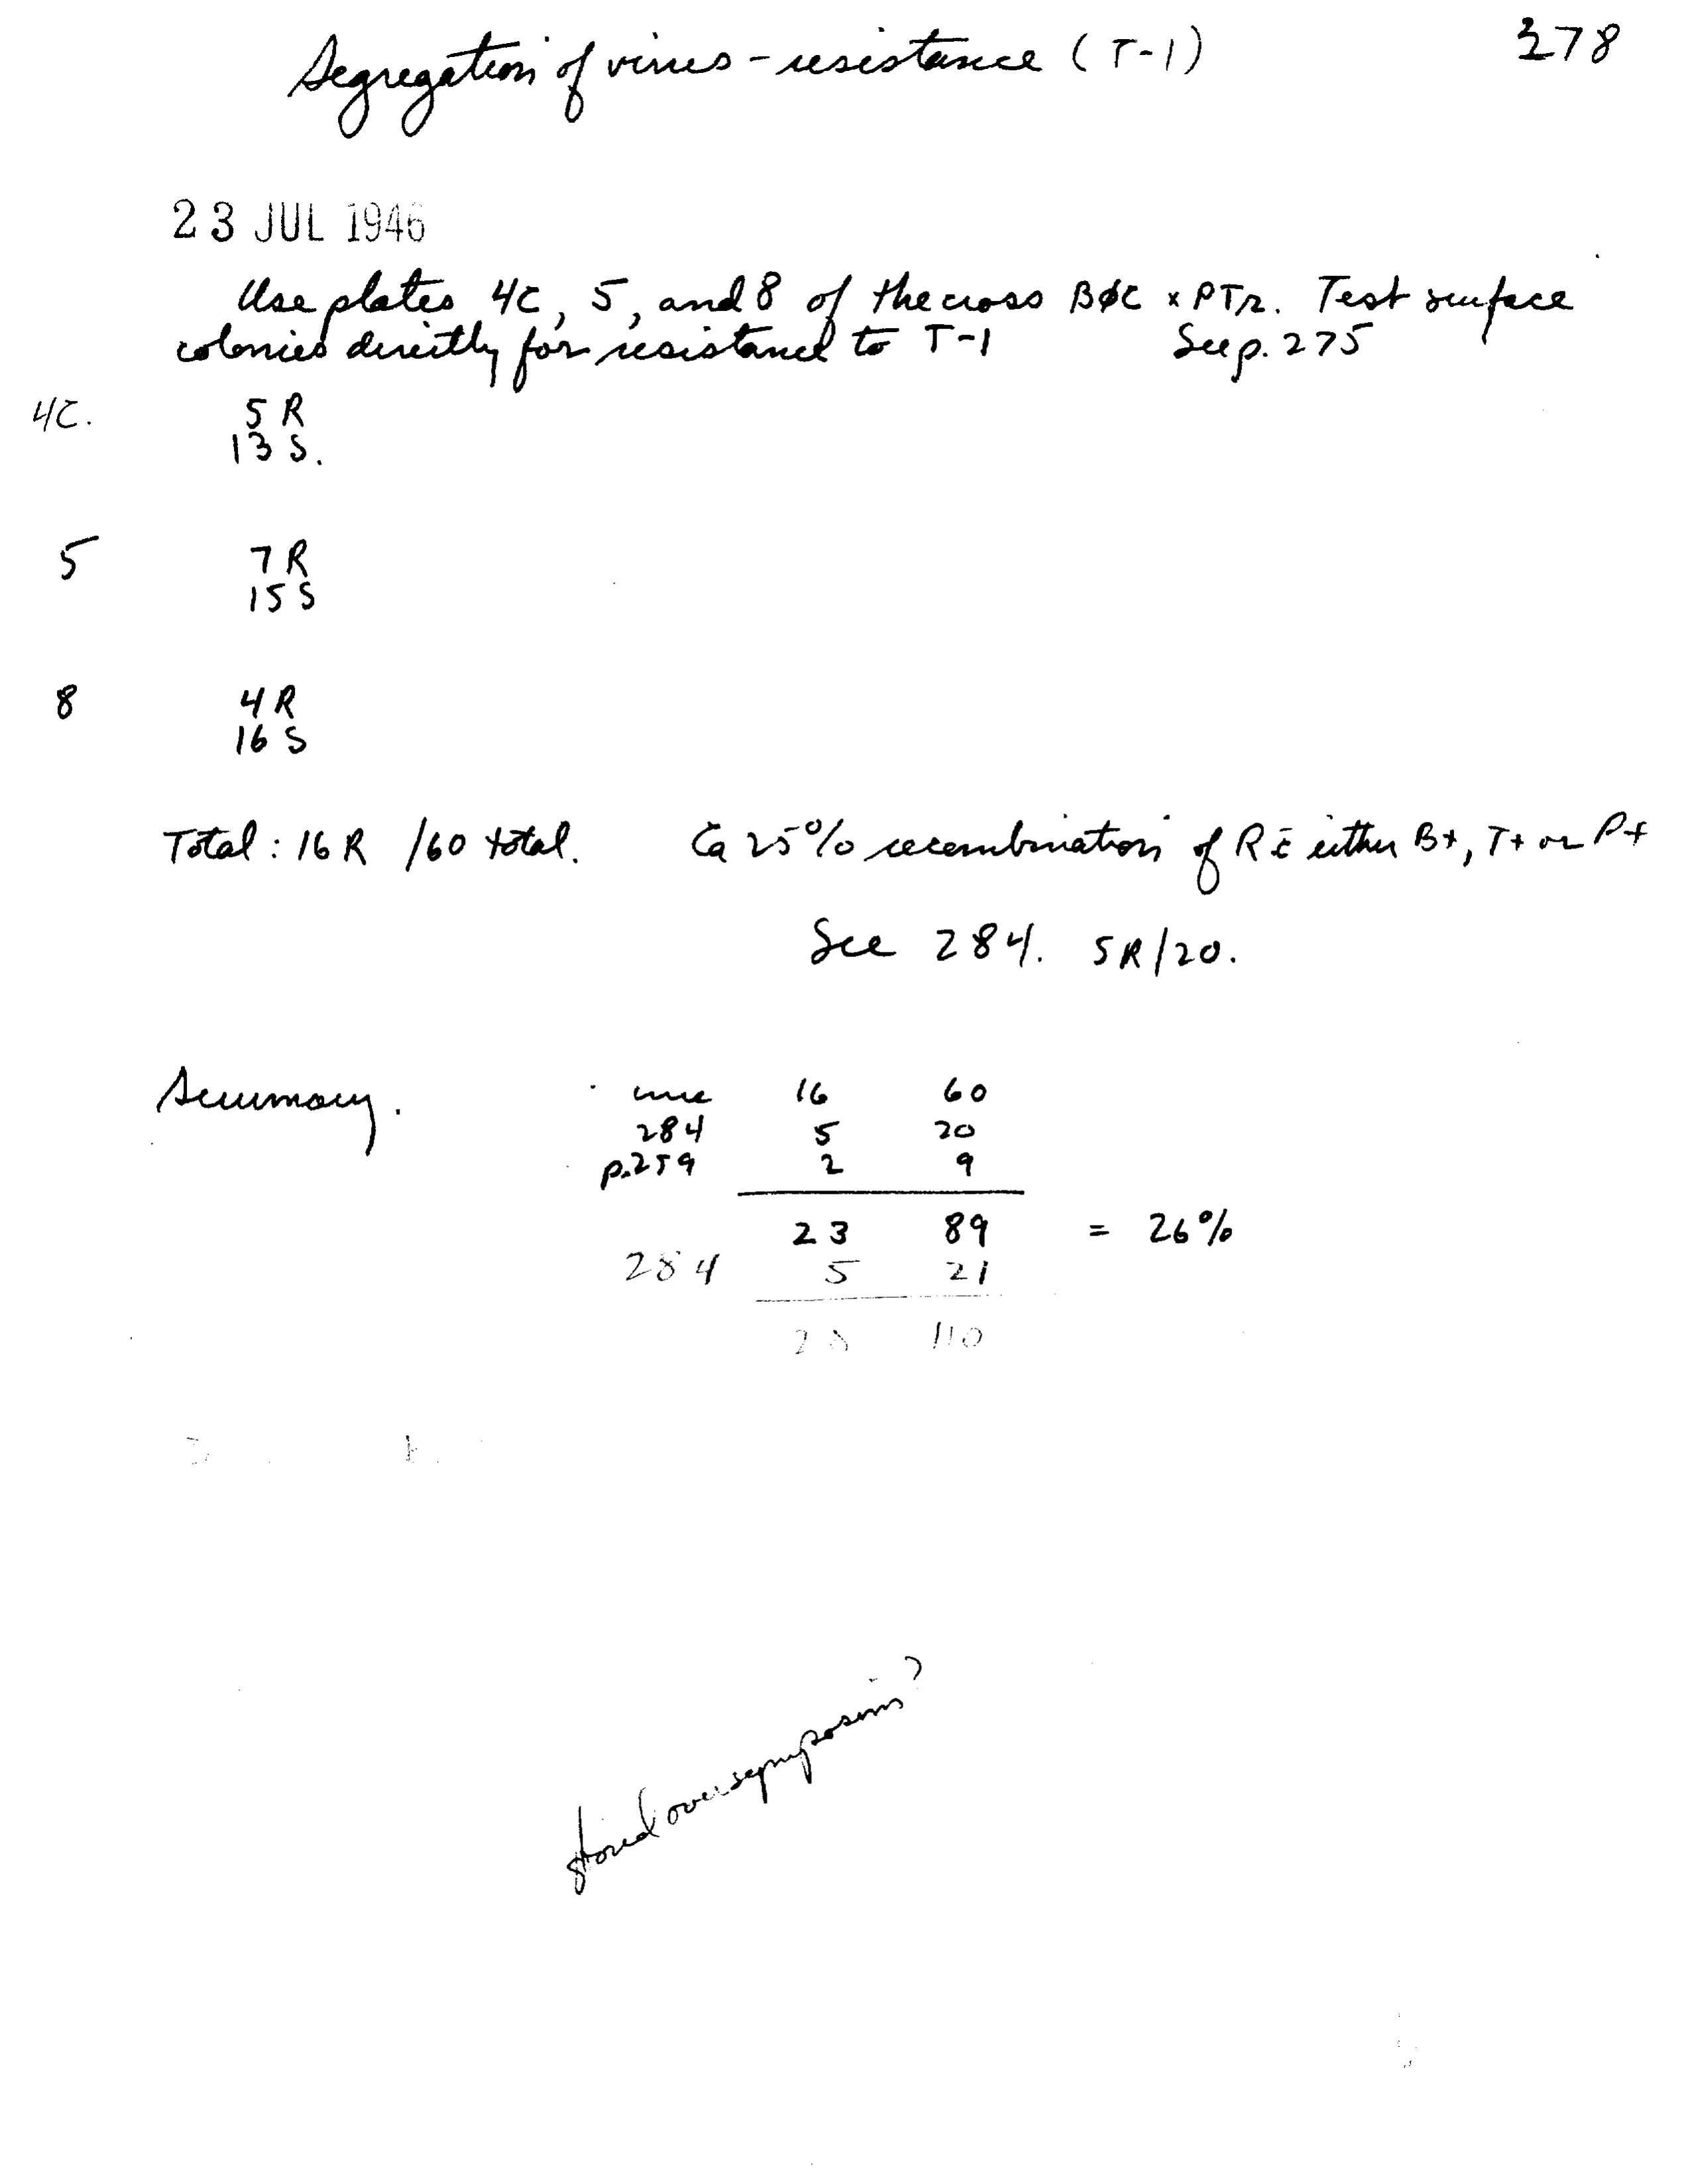 Segregation of virus-resistance (T-1) 278
23 JUL 1946
Use plates 4C, 5, and 8 of the cross BφC × PTr. Test surface
colonies directly for resistance to T-1 See p. 275
4C. 5 R
13 S.
5 7 R
15 S
8 4 R
16 S
Total: 16 R /60 total. Ca 25% recombination of R c̄ either B+, T+ or P+
See 284. 5R/20.
Summary. 16 60
284 5 20
p.259 2 9
23 89 = 26%
284 5 21
28 110
stored over symposium?